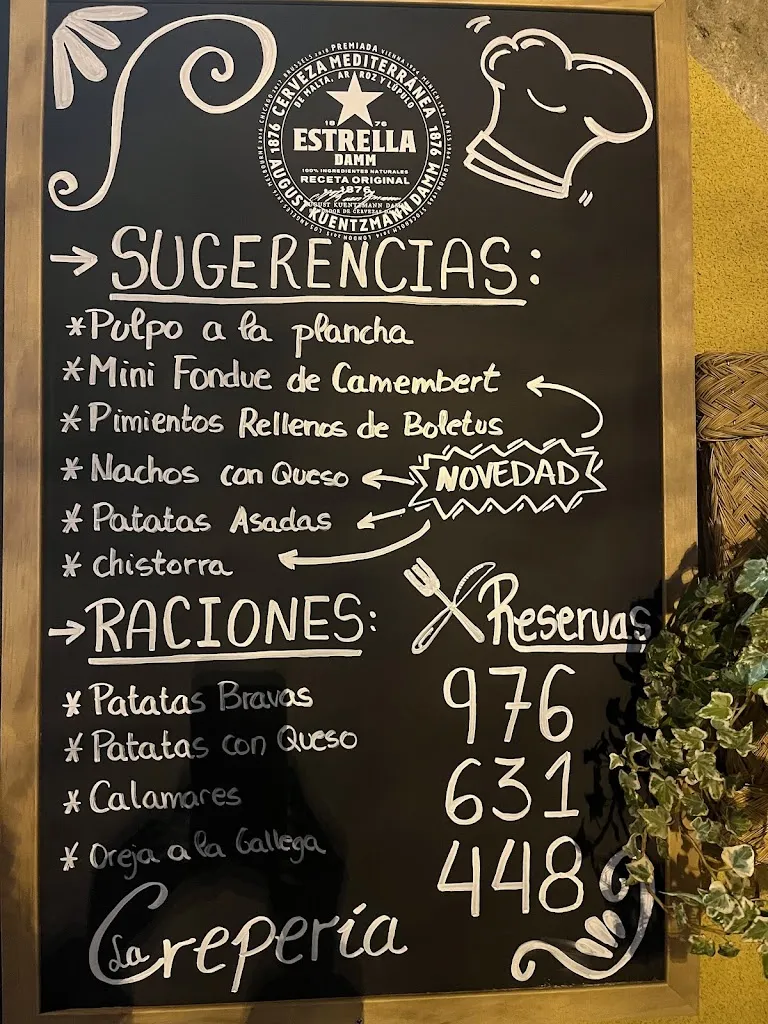 PREMIADA
CERVEZA MEDITERRÁNEA
DE MALTA, ARROZ Y LÚPULO
1876
1876
1876
ESTRELLA
DAMM
100% INGREDIENTES NATURALES
RECETA ORIGINAL
1876
AUGUST KUENTZMANN DAMM
→ SUGERENCIAS:
*Pulpo a la plancha
*Mini Fondue de Camembert
*Pimientos Rellenos de Boletus
*Nachos con Queso
NOVEDAD
*Patatas Asadas
*chistorra
→ RACIONES:
*Patatas Bravas
*Patatas con Queso
*Calamares
*Oreja a la Gallega
Reservas
976
631
448
La Crepería